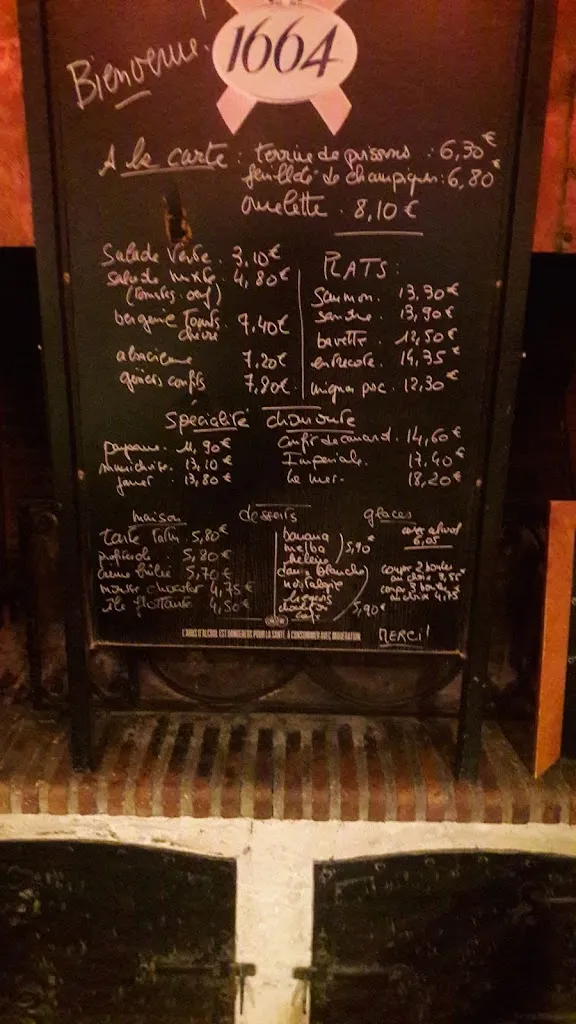 Bienvenue!
1664
A la carte : terrine de poissons : 6,30€
feuilleté de champignons : 6,80€
omelette . 8,10€
Salade Verte . 3,10€
salade mixte . 4,80€
(tomates. oeuf)
bergerie Toasts 7,40€
chèvre
alsacienne 7,20€
gésiers confits 7,80€
PLATS :
Saumon. 13,30€
sandre. 13,90€
bavette. 12,50€
entrecote. 14,35€
mignon porc. 12,30€
Spécialité choucroute
paysanne. 11,90€
munichoise. 13,10€
jarret. 13,80€
Confit de canard. 14,60€
Impériale. 17,40€
la mer. 18,20€
maison desserts glaces
tarte Tatin . 5,80€
profiterole . 5,80€
crème brûlée . 5,70€
mousse chocolat 4,75€
île flottante . 4,50€
banana
melba 5,90€
helène
dame blanche
nostalgie
liégeois
chocolat ou
café 5,90€
avec alcool
6,05
coupe 2 boules
au choix
coupe 3 boules
au choix 4,75
MERCI!
L'ABUS D'ALCOOL EST DANGEREUX POUR LA SANTÉ. À CONSOMMER AVEC MODÉRATION.